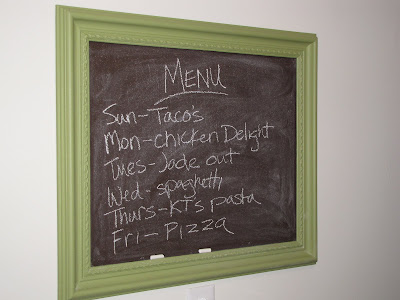 MENU
Sun-Taco's
Mon-chicken Delight
Tues-Jade out
Wed-spaghetti
Thurs-KT's pasta
Fri-Pizza